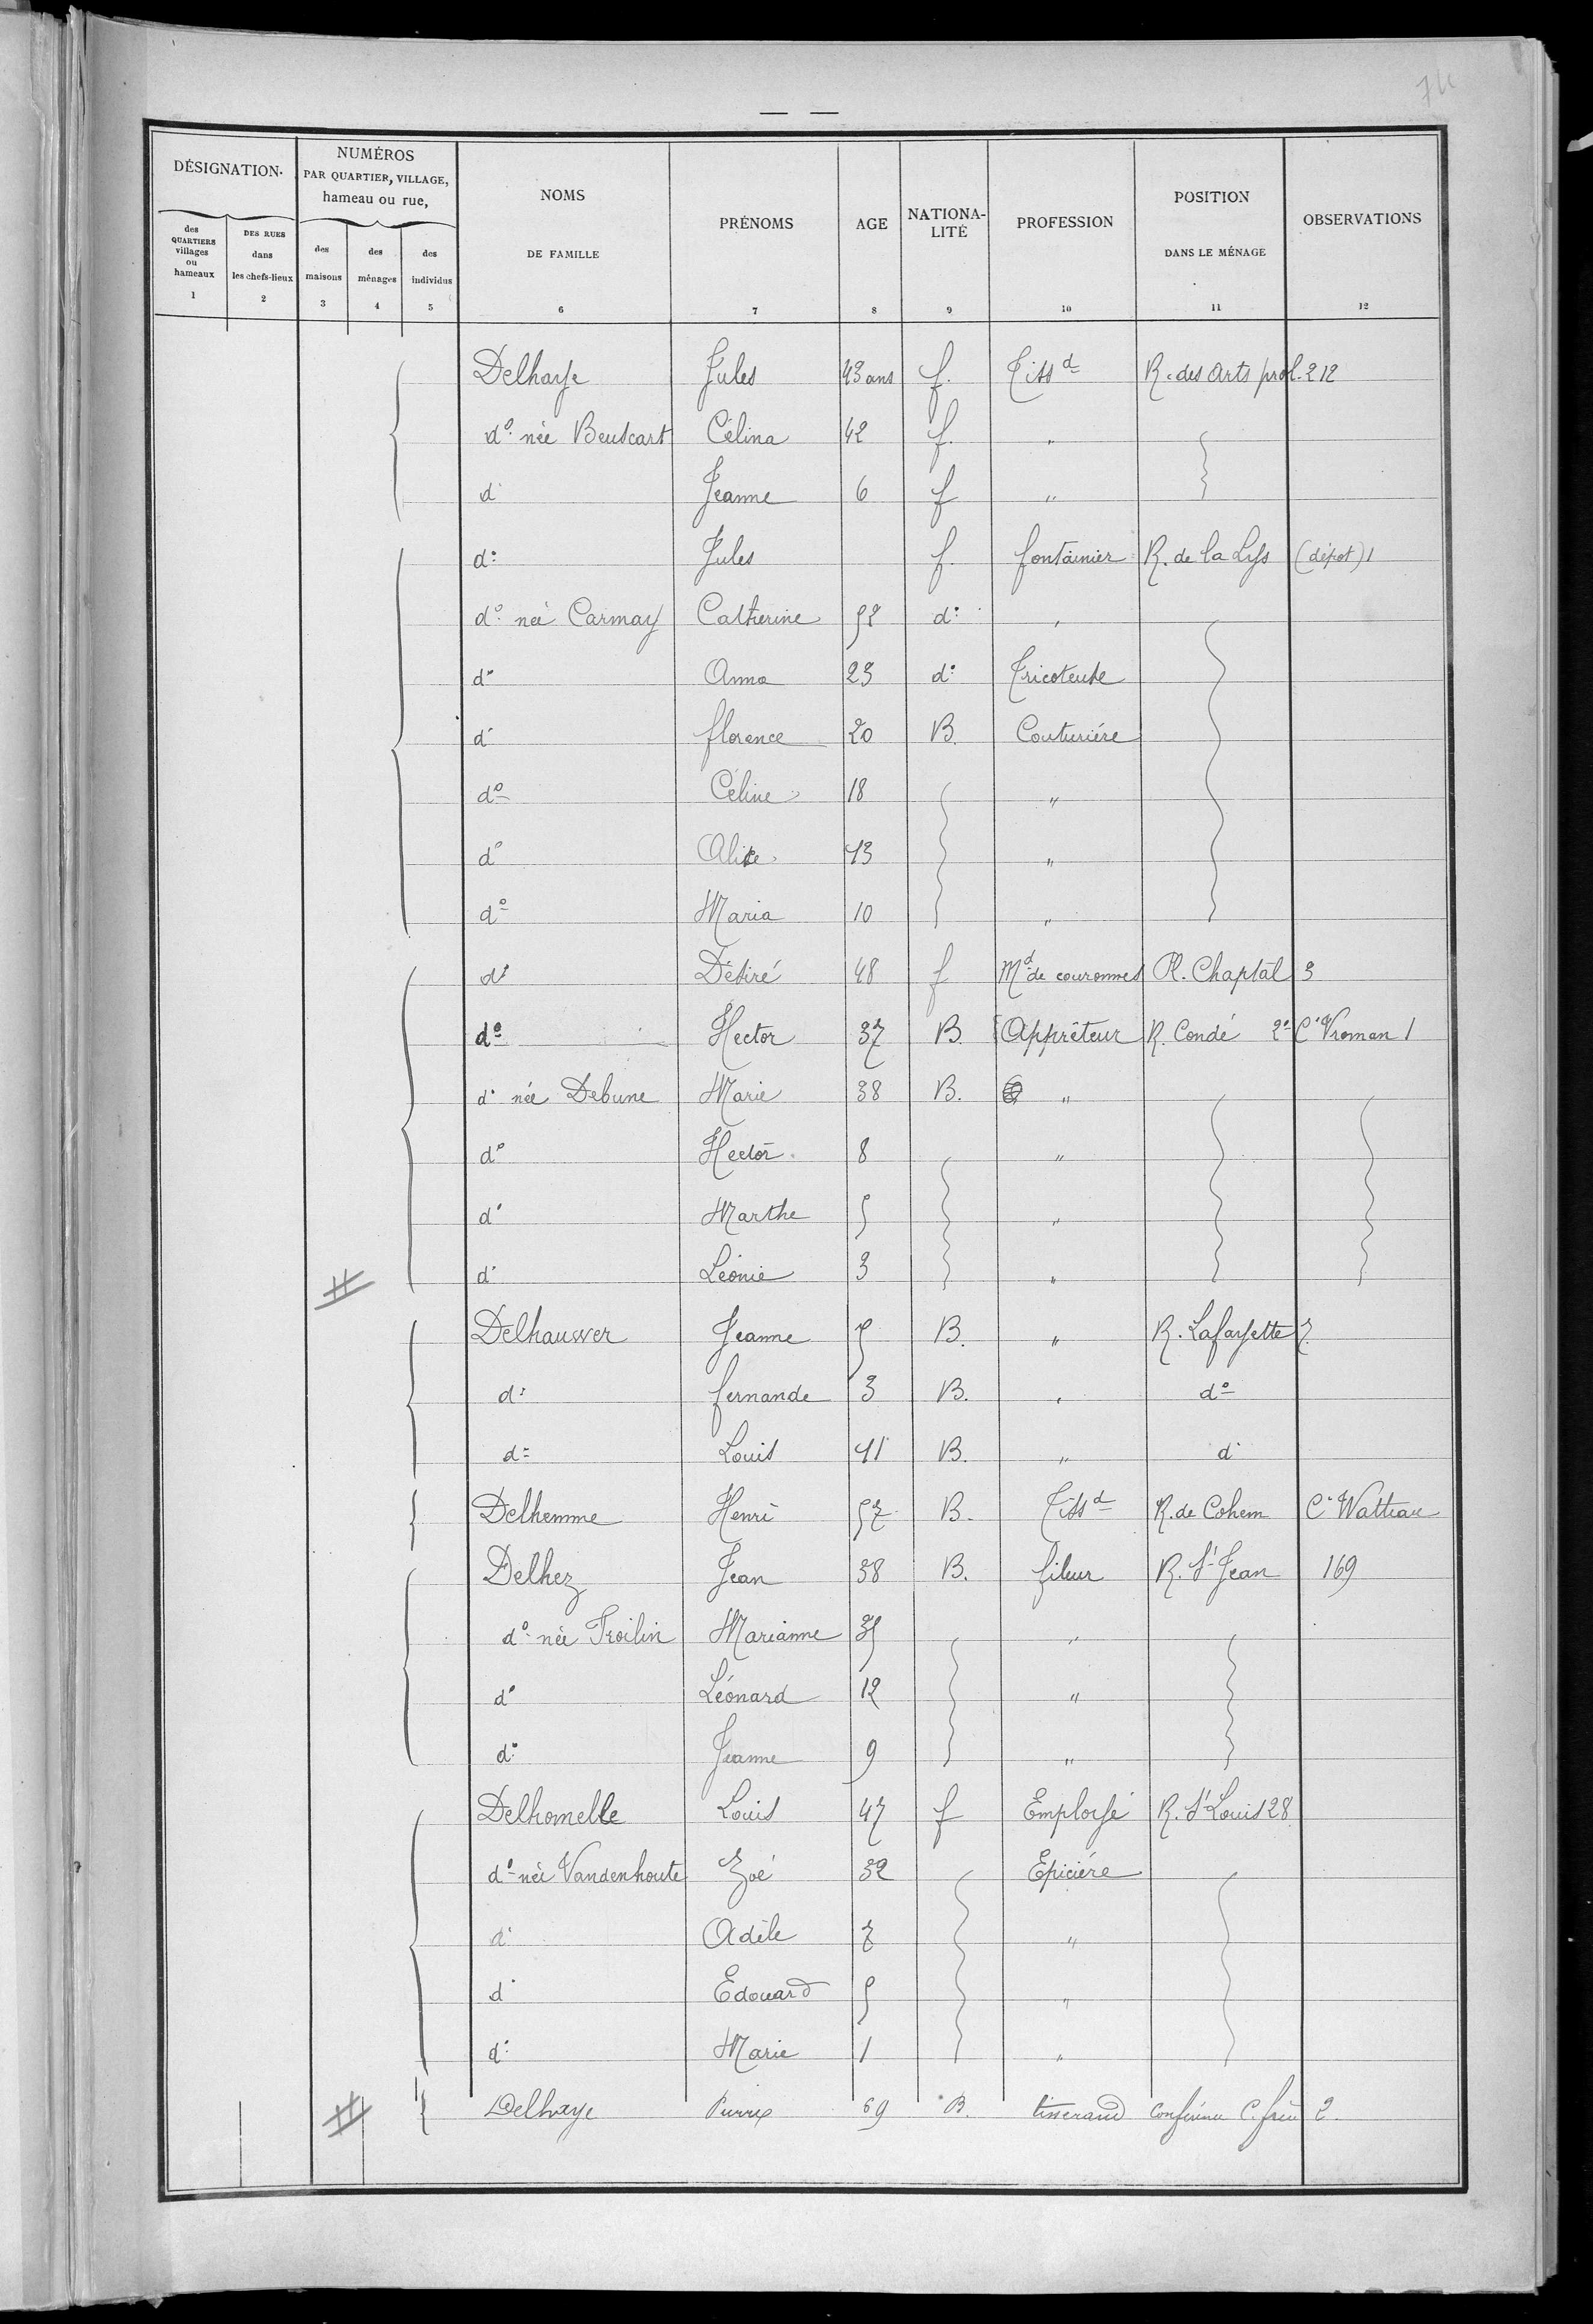 74
DÉSIGNATION. NUMÉROS PAR QUARTIER, VILLAGE, hameau ou rue, NOMS DE FAMILLE PRÉNOMS AGE NATIONALITÉ PROFESSION POSITION DANS LE MÉNAGE OBSERVATIONS
des QUARTIERS villages ou hameaux DES RUES dans les chefs-lieux des maisons des ménages des individus
1 2 3 4 5 6 7 8 9 10 11 12
Delhaye Jules 43 ans f. Tissd R. des Arts prol. 212
do née Beuscart Célina 42 f. "
d° Jeanne 6 f "
d° Jules f. fontainier R. de la Lys (dépot) 1
do née Carmay Catherine 52 d° "
d° Anna 23 d° Tricoteuse
d° florence 20 B. Couturière
do Céline 18 "
do Alice 13 "
do Maria 10 "
d° Désiré 48 f Md de couronnes Pl. Chaptal 3
do Hector 37 B. Apprêteur R. Condé 2° C° Vroman 1
d° née Debune Marie 38 B. "
do Hector 8 "
d° Marthe 5 "
d° Léonie 3 "
Delhauwer Jeanne 5 B. " R. Lafayette 7
d° fernande 3 B. " do
d° Louis 41 B. " d°
Delhemme Henri 57 B. Tissd R. de Cohem C° Watteau
Delhez Jean 38 B. fileur R. St Jean 169
do née Troilin Marianne 35 "
d° Léonard 12 "
d° Jeanne 9 "
Delhomelle Louis 47 f Employé R. St Louis 28
do née Vandenhoute Zoé 32 Epicière
d° Adèle 7 "
d° Edouard 5 "
d° Marie 1 "
Delhaye Pierre 69 B. tisserand 2.